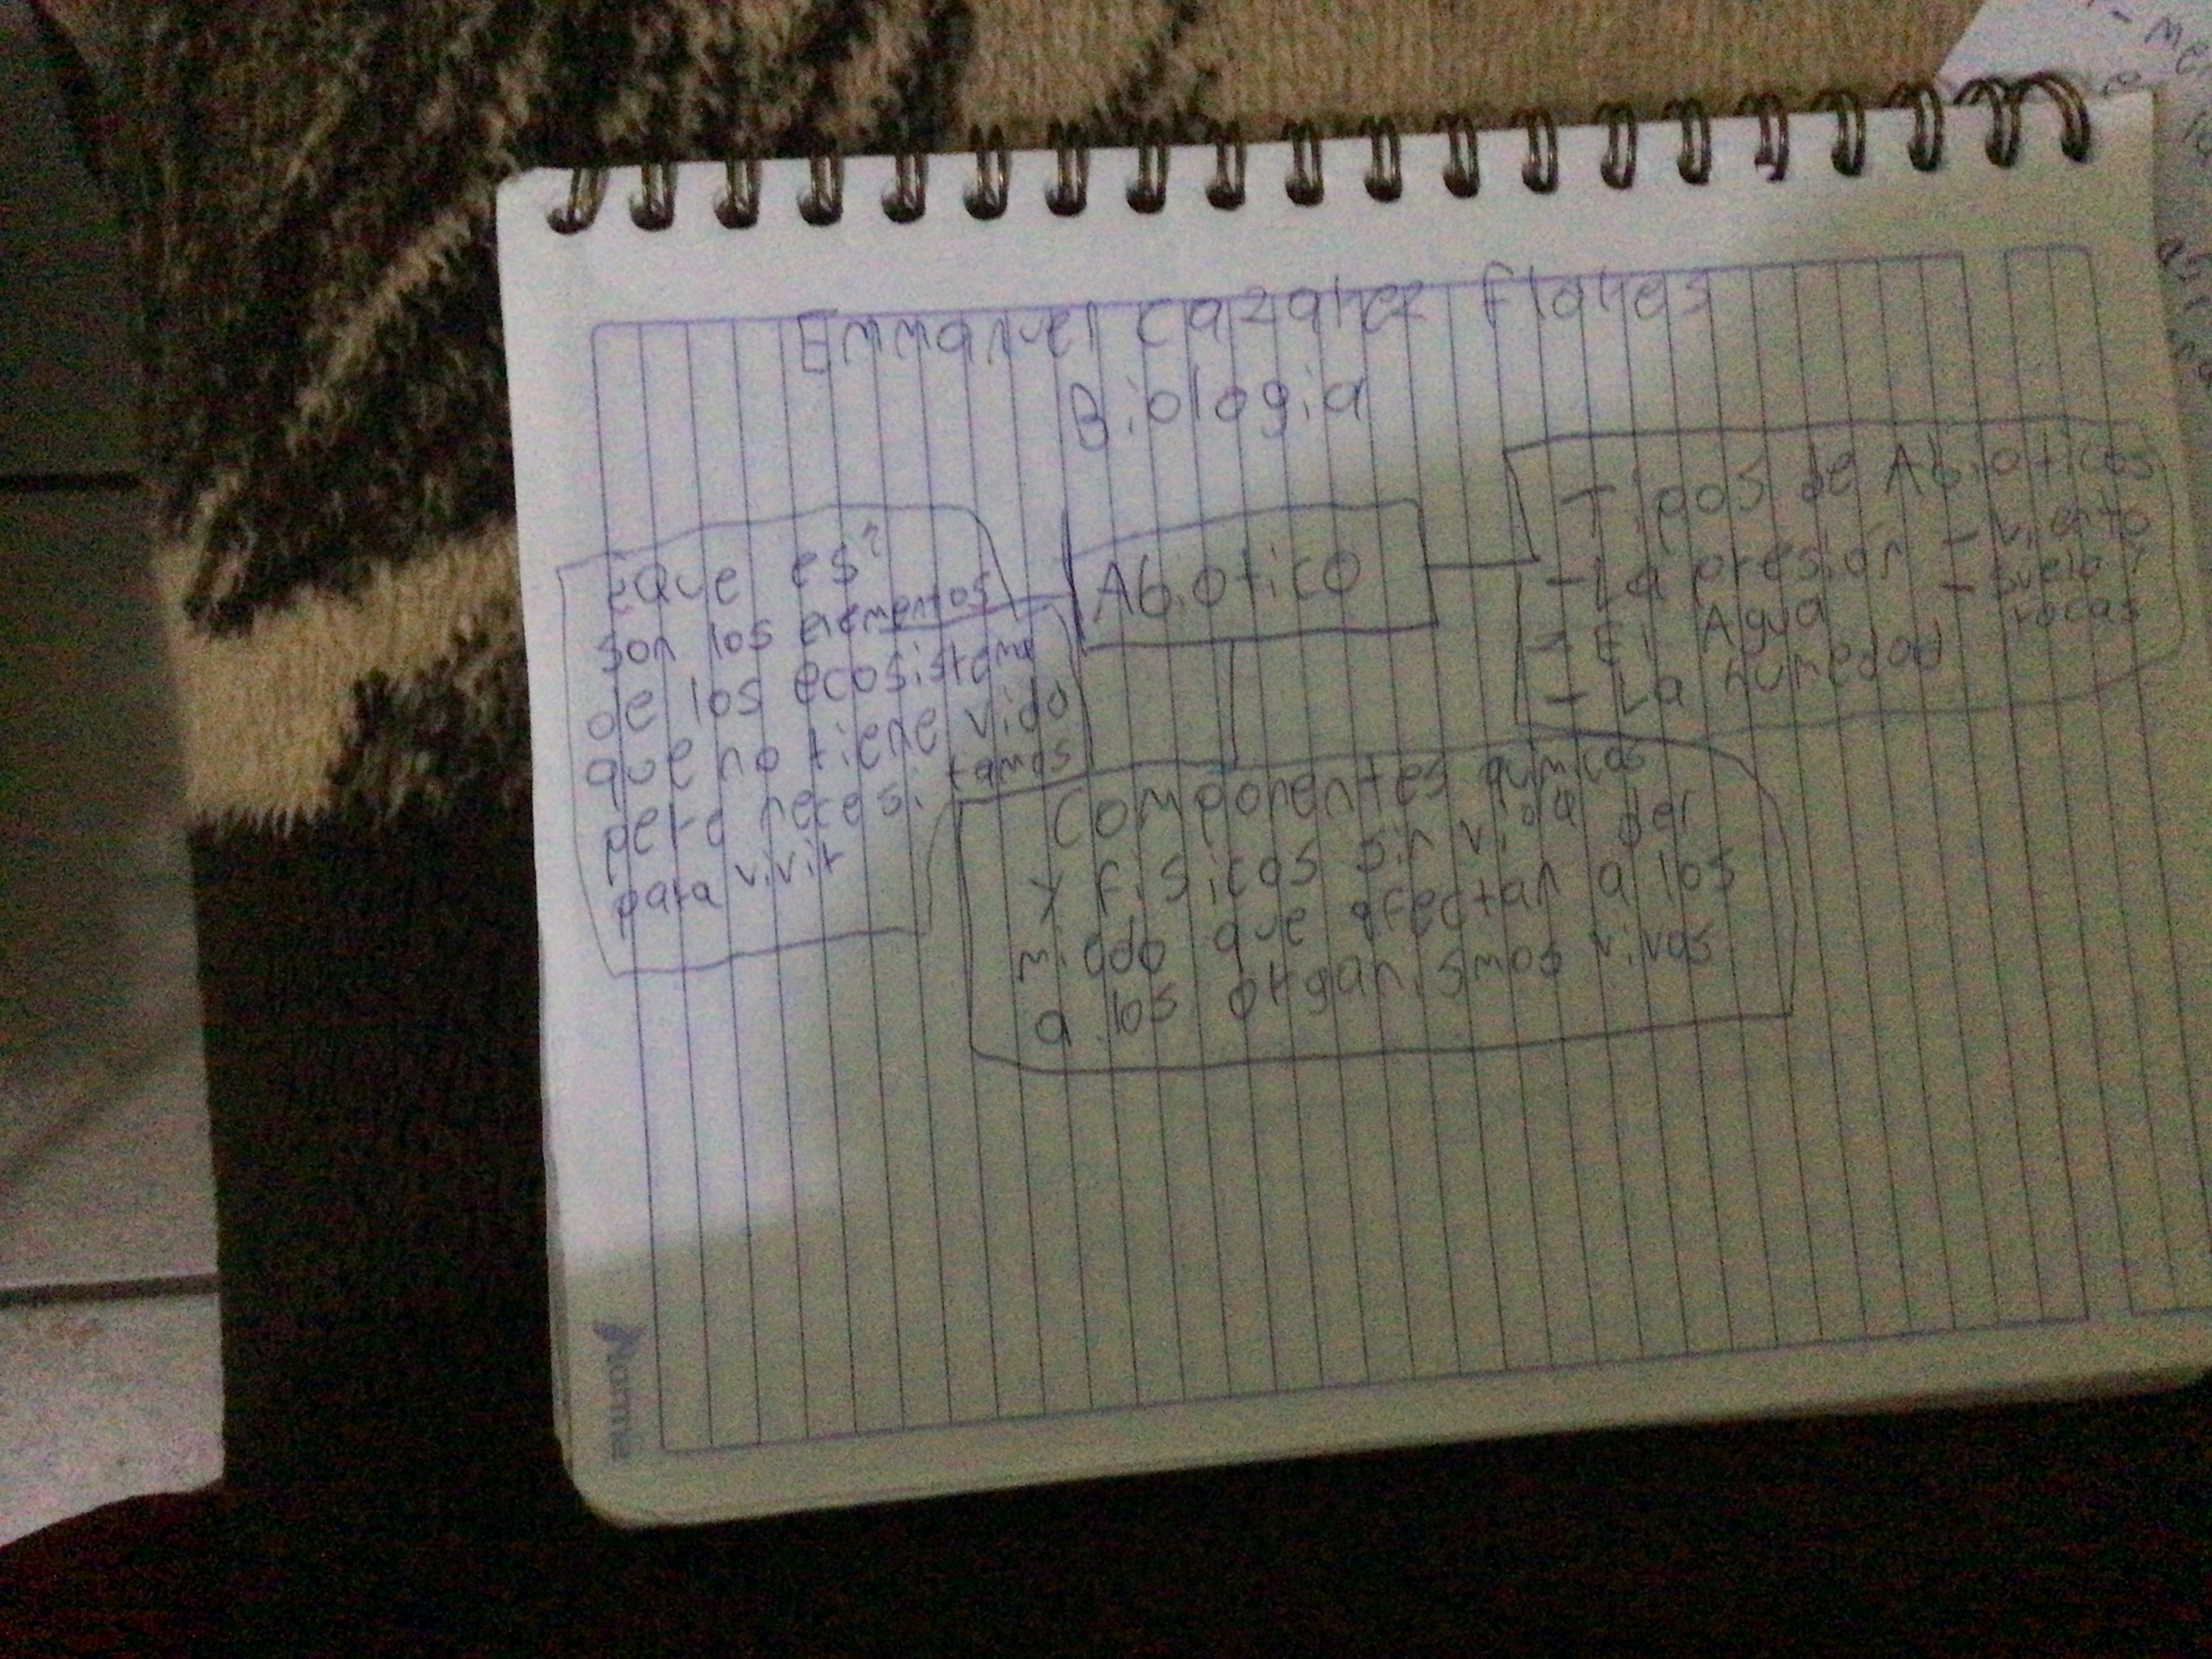 Emmanuel Cazarez Flores
Biologia
¿Que es?
son los elementos
de los ecosistema
que no tiene vida
pero necesitamos
para vivir
Abiotico
Tipos de Abioticos
- La presión - viento
- El Agua - suelo y
rocas
- La humedad
Componentes quimicos
y fisicos sin vida del
miedo que afectan a los
a los organismos vivos
Norma